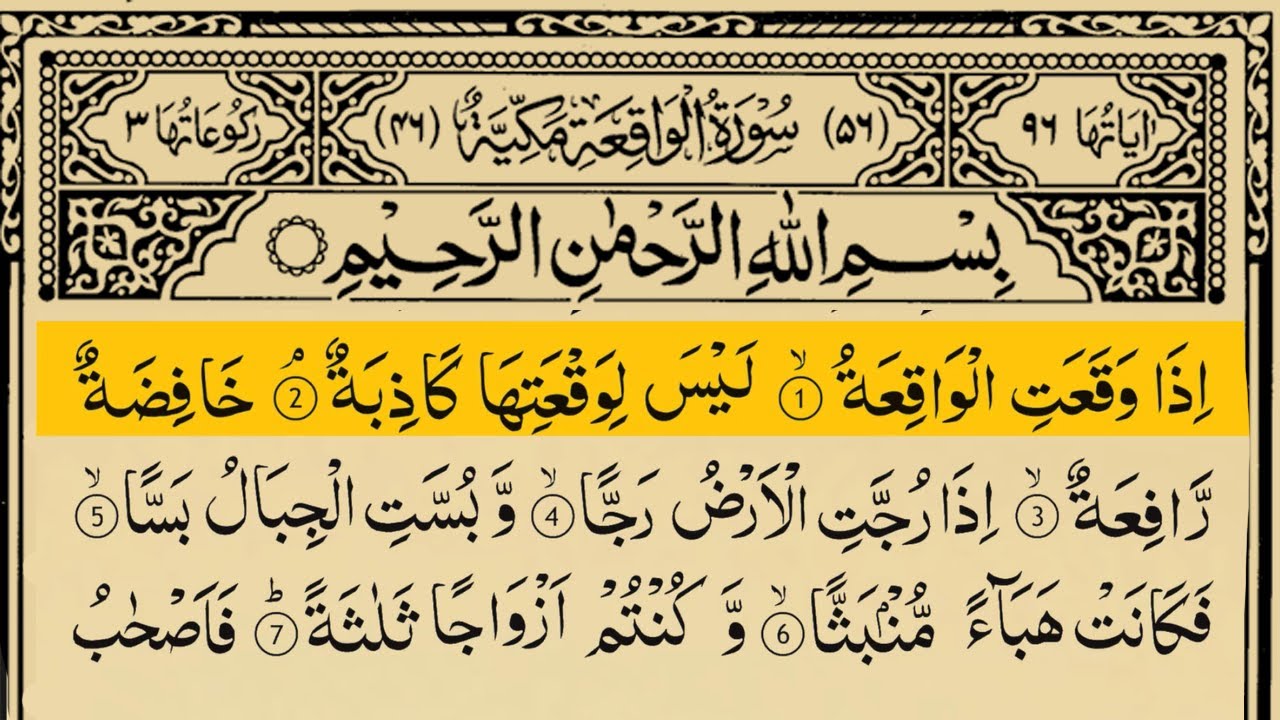 اٰیَاتُهَا ٩٦ (٥٦) سُوْرَةُ الْوَاقِعَةِ مَكِّيَّةٌ (٤٦) رُكُوْعَاتُهَا ٣
بِسْمِ اللّٰهِ الرَّحْمٰنِ الرَّحِيْمِ
اِذَا وَقَعَتِ الْوَاقِعَةُ ۙ① لَيْسَ لِوَقْعَتِهَا كَاذِبَةٌ ۘ② خَافِضَةٌ
رَّافِعَةٌ ۙ③ اِذَا رُجَّتِ الْاَرْضُ رَجًّا ۙ④ وَّ بُسَّتِ الْجِبَالُ بَسًّا ۙ⑤
فَكَانَتْ هَبَآءً مُّنْۢبَثًّا ۙ⑥ وَّ كُنْتُمْ اَزْوَاجًا ثَلٰثَةً ؕ⑦ فَاَصْحٰبُ